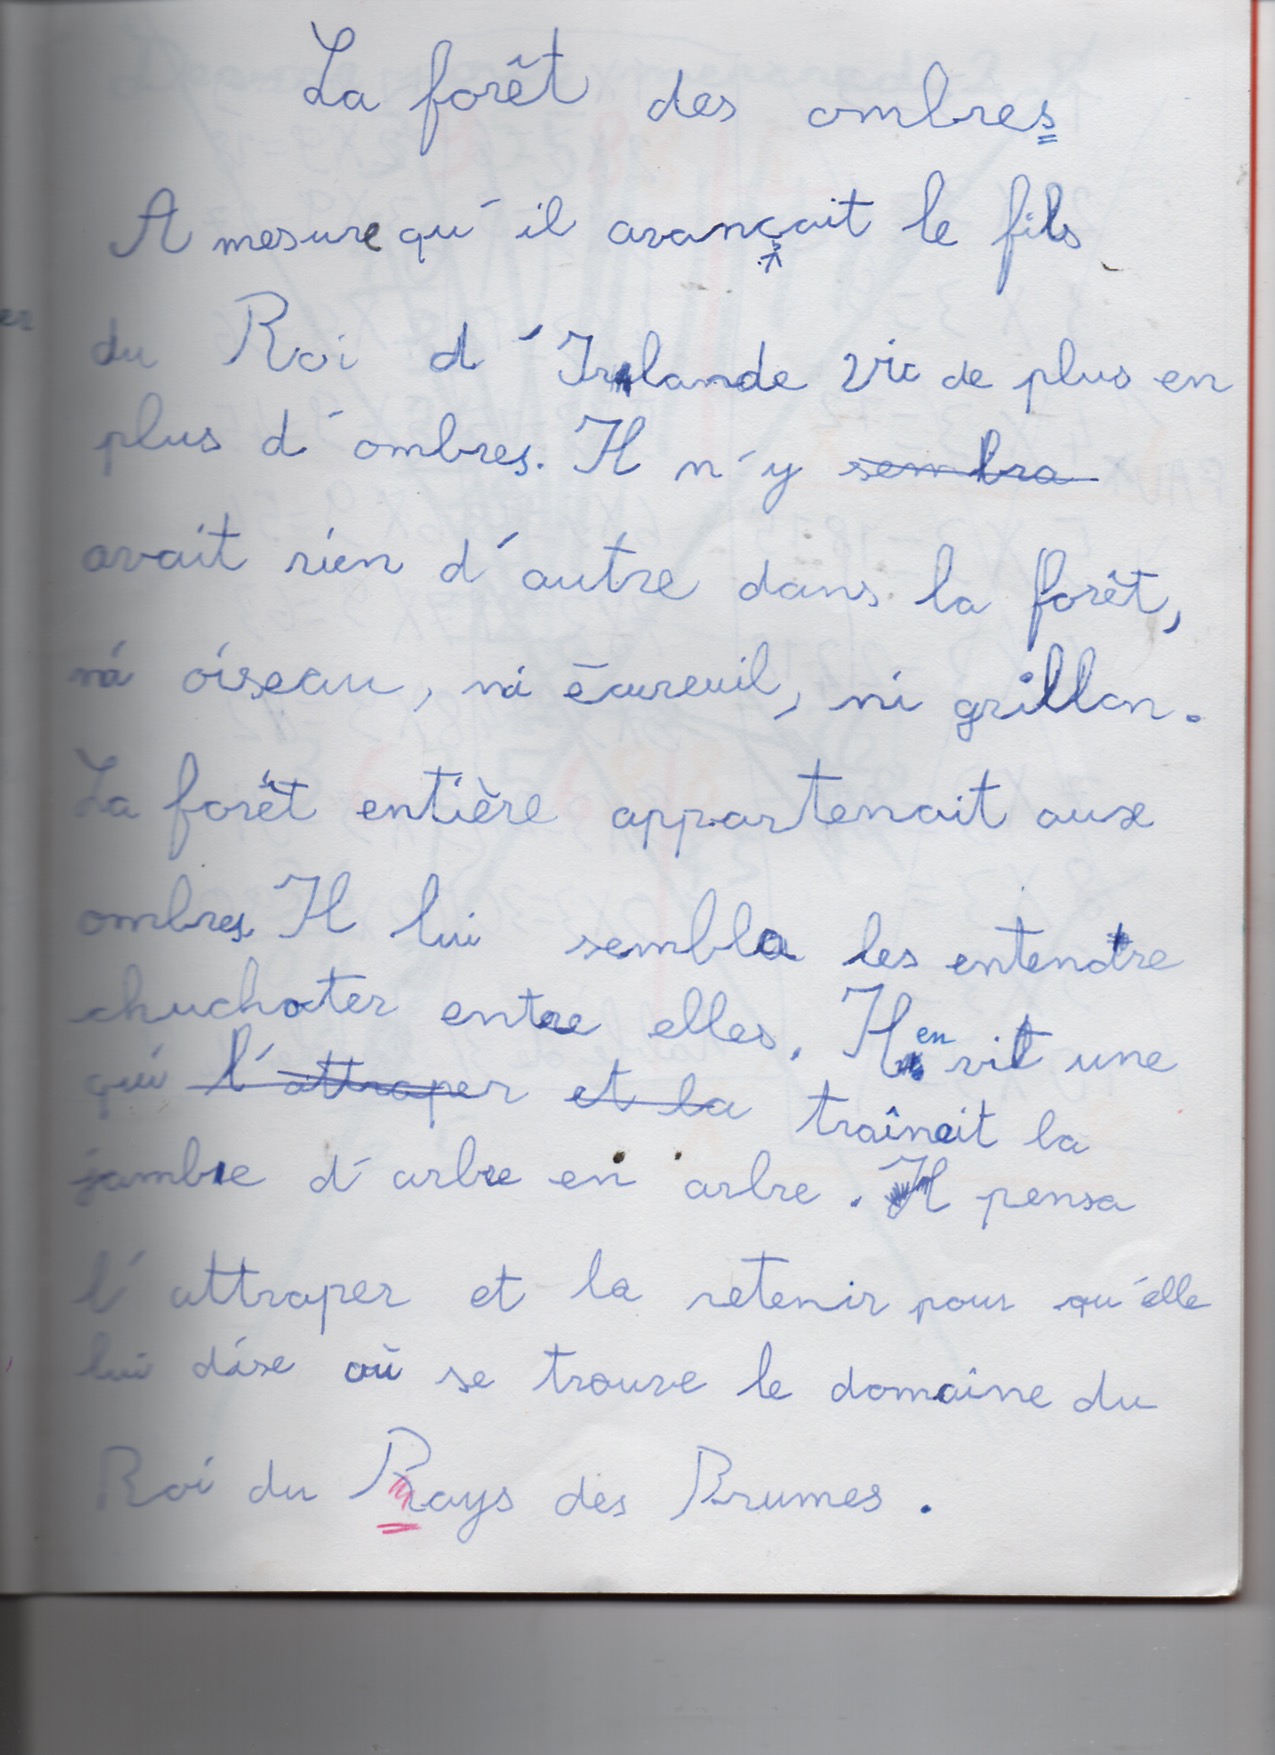 La forêt des ombres
A mesure qu'il avançait le fils
du Roi d'Irlande vit de plus en
plus d'ombres. Il n'y sembra
avait rien d'autre dans la forêt,
ni oiseau, ni écureuil, ni grillon.
La forêt entière appartenait aux
ombres. Il lui sembla les entendre
chuchoter entre elles. Il en vit une
qui l'attraper et la traînait la
jambe d'arbre en arbre. Il pensa
l'attraper et la retenir pour qu'elle
lui dise où se trouve le domaine du
Roi du Pays des Brumes.